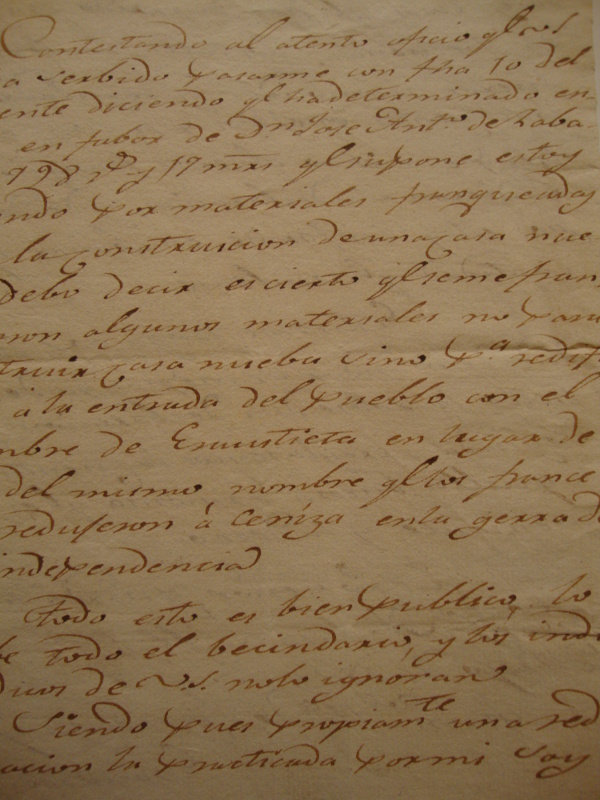 Contestando al atento oficio qe V.S.
a serbido pasarme con fha 10 del
ente diciendo qe ha determinado en
en fabor de Dn Jose Anto de Laba
798 rs y 17 mrs qe supone estoy
endo por materiales franqueados
la construicion de una casa nue
debo decir es cierto qe se me fran
ron algunos materiales no para
truir casa nueba sino pa redif
á la entrada del pueblo con el
mbre de en lugar de
del mismo nombre qe los france
redujeron á ceniza en la gerra d
independencia
Todo esto es bien publico, lo
be todo el becindario, y los indi
duos de V.S. no lo ignoran
Siendo pues propiamte una red
cacion la practicada por mi soy